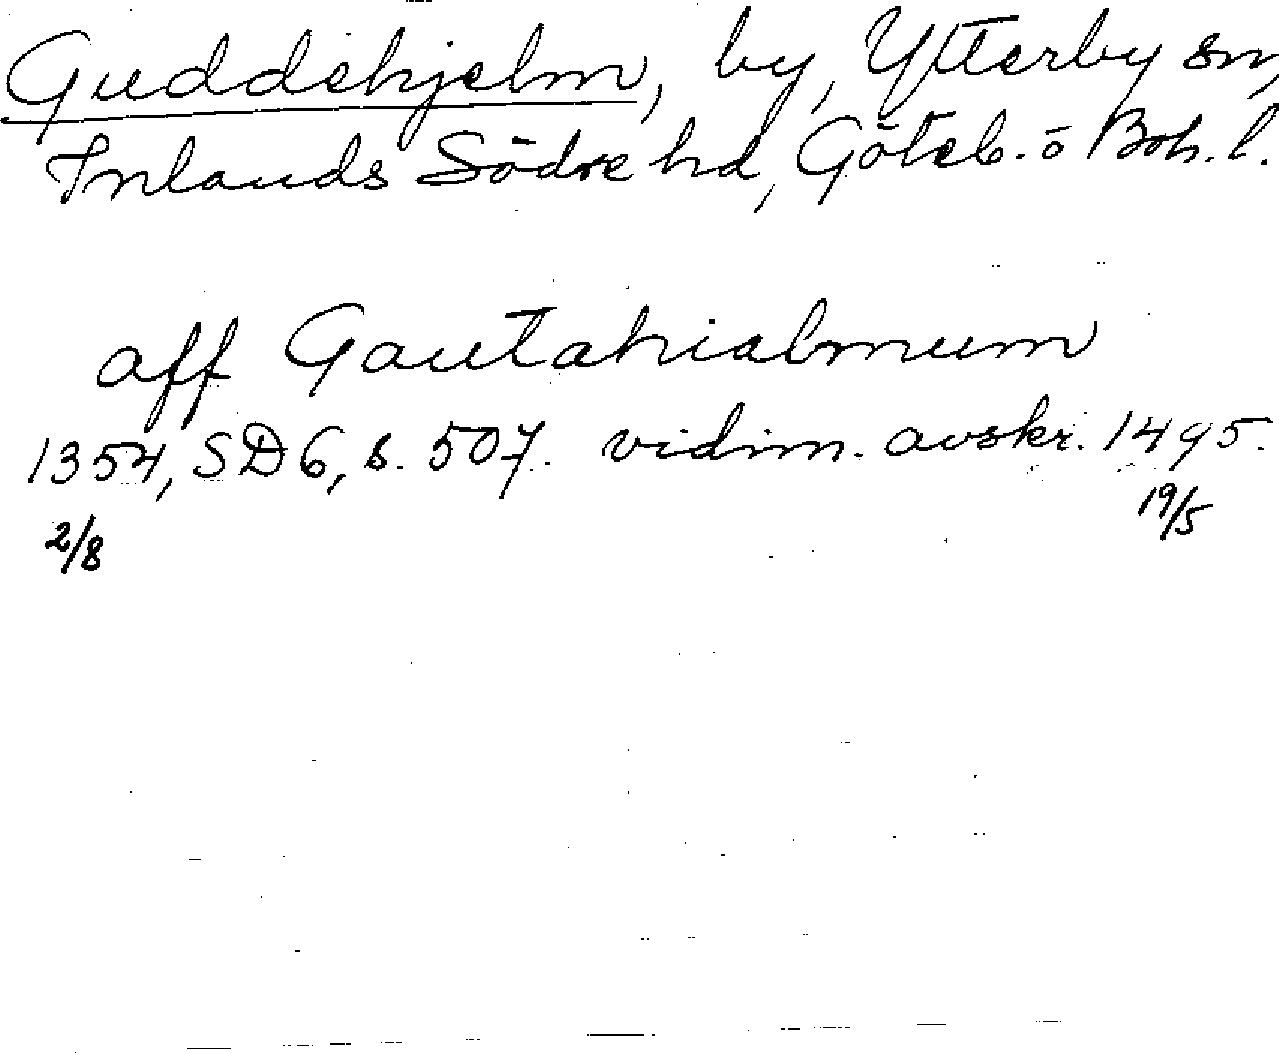 Guddehjelm, by, Ytterby sn,
Inlands Södre hd, Göteb. o Boh. l.
aff Gautahialmum
1354, SD 6, s. 507. vidim. avskr. 1495.
2/8 19/5